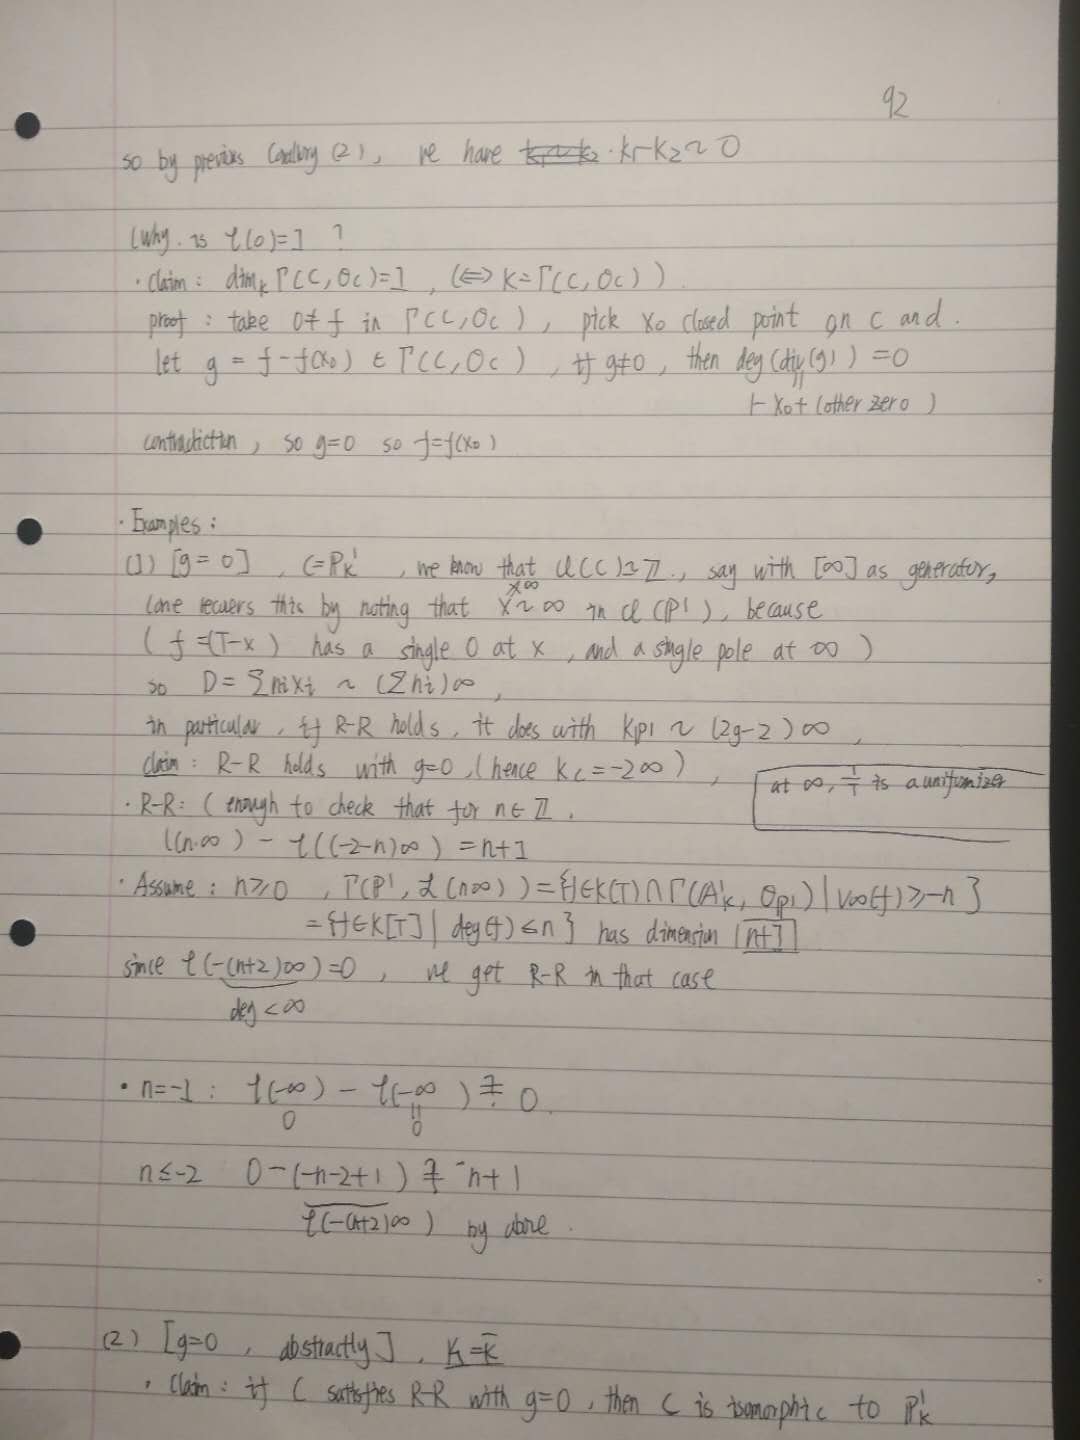 92
so by previous Corollary (2), we have k₁~k₂ · k₁-k₂ ~ 0
(Why is ℓ(0)=1 ?
· Claim: dimₖ Γ(C, O_C)=1, (⟺ K=Γ(C, O_C))
proof: take 0≠f in Γ(C, O_C), pick x₀ closed point on C and.
let g = f-f(x₀) ∈ Γ(C, O_C), if g≠0, then deg(div(g)) = 0
|| 1·x₀+(other zero)
contradiction, so g=0 so f=f(x₀)
· Examples:
(1) [g=0], C=P¹ₖ, we know that Cl(C)≃ℤ, say with [∞] as generator,
(one recovers this by noting that x~∞ in Cl(P¹), because x≠∞
(f=(T-x) has a single 0 at x, and a single pole at ∞)
so D=Σnᵢxᵢ ~ (Σnᵢ)∞,
in particular, if R-R holds, it does with K_P¹ ~ (2g-2)∞,
claim: R-R holds with g=0, (hence K_C=-2∞),
at ∞, 1/T is a uniformizer
· R-R: (enough to check that for n∈ℤ,
ℓ(n·∞) - ℓ((-2-n)∞) = n+1
· Assume: n≥0, Γ(P¹, ℒ(n∞))={f∈K(T)∩Γ(A¹ₖ, O_P¹) | v∞(f)≥-n}
={f∈K[T] | deg(f)≤n} has dimension n+1
since ℓ(-(n+2)∞)=0, we get R-R in that case
deg<∞
· n=-1: ℓ(-∞) - ℓ(-∞) ≟ 0.
0 || 0
n≤-2 0-(-n-2+1) ≟ n+1
ℓ(-(n+2)∞) by above.
(2) [g=0, abstractly], K=K̄
· Claim: if C satisfies R-R with g=0, then C is isomorphic to P¹ₖ